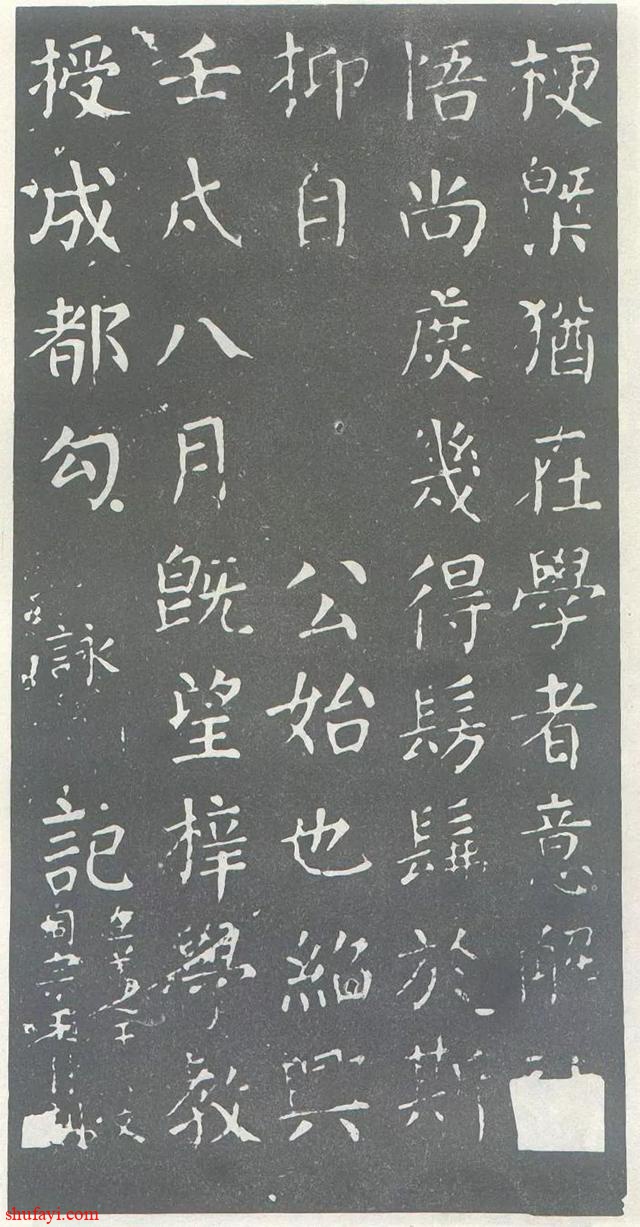 梗槩猶在學者意解
悟尚庶幾得髣髴於斯
抑自公始也紹興
壬戌八月既望梓學教
授成都勾詠記
shufayi.com